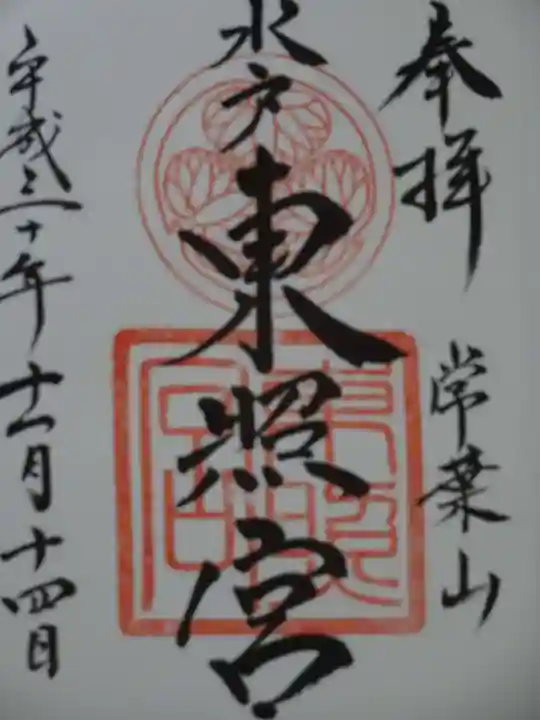 奉拝
常葉山
水戸東照宮
平成三十年十一月十四日